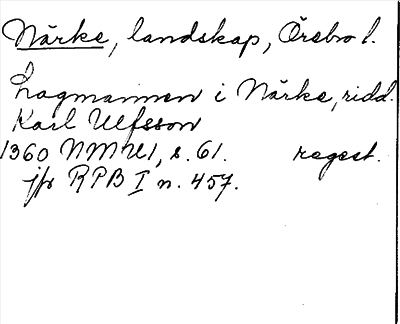 Närke, landskap, Örebro l.
Lagmannen i Närke, ridd.
Karl Ulfsson
1360 NMU1, s. 61. regest.
jfr RPB I n. 457.